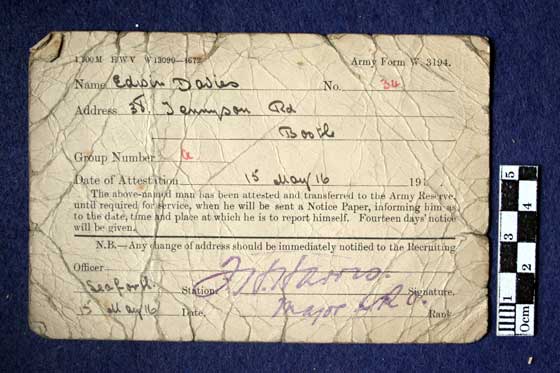 1300M HWV W13090—4672 Army Form W. 3194.
Name Edwin Davies No. 34
Address 37. Tennyson Rd
Bootle
Group Number a
Date of Attestation 15 May 16 191
The above-named man has been attested and transferred to the Army Reserve,
until required for service, when he will be sent a Notice Paper, informing him as
to the date, time and place at which he is to report himself. Fourteen days' notice
will be given.
N.B.—Any change of address should be immediately notified to the Recruiting
Officer
Seaforth. Station. Harris. Signature.
15 May 16 Date. Major R.O. Rank
0cm 1 2 3 4 5